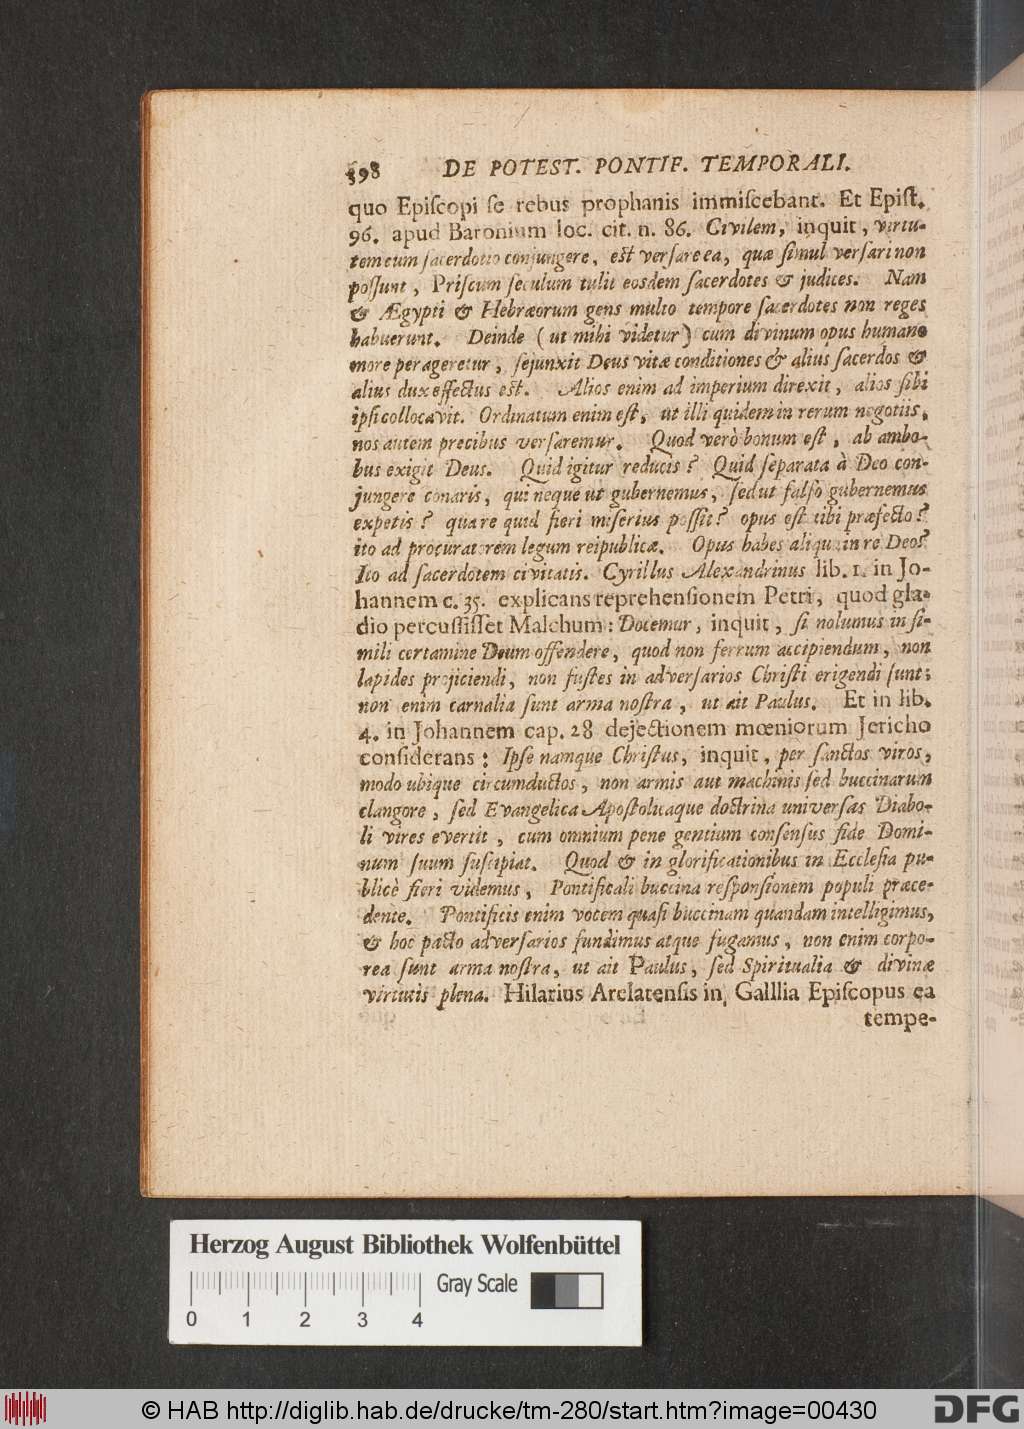 398 DE POTEST. PONTIF. TEMPORALI.
quo Epiſcopi ſe rebus prophanis immiſcebant. Et Epiſt.
96. apud Baronium loc. cit. n. 86. Civilem, inquit, virtu-
tem cum ſacerdotio conjungere, est verſare ea, quæ ſimul verſari non
poſſunt, Priſcum ſeculum tulit eosdem ſacerdotes & judices. Nam
& Ægypti & Hebræorum gens multo tempore ſacerdotes non reges
habuerunt. Deinde (ut mihi videtur) cum divinum opus humano
more perageretur, ſejunxit Deus vitæ conditiones & alius ſacerdos &
alius dux effectus est. Alios enim ad imperium direxit, alios ſibi
ipſi collocavit. Ordinatum enim eſt, ut illi quidem in rerum negotiis,
nos autem precibus verſaremur. Quod verò bonum eſt, ab ambo-
bus exigit Deus. Quid igitur reducis? Quid ſeparata à Deo con-
jungere conaris, qui neque ut gubernemus, ſed ut falſo gubernemus
expetis? quare quid fieri miſerius poſſit? opus eſt tibi præfecto?
ito ad procuratorem legum reipublicæ. Opus habes aliqua in re Deo?
Ito ad ſacerdotem civitatis. Cyrillus Alexandrinus lib. 1. in Jo-
hannem c. 35. explicans reprehenſionem Petri, quod gla-
dio percuſſiſſet Malchum: Docemur, inquit, ſi nolumus in ſi-
mili certamine Deum offendere, quod non ferrum accipiendum, non
lapides projiciendi, non fuſtes in adverſarios Chriſti erigendi ſunt:
non enim carnalia ſunt arma noſtra, ut ait Paulus. Et in lib.
4. in Johannem cap. 28 dejectionem mœniorum Jericho
conſiderans: Ipſe namque Chriſtus, inquit, per ſanctos viros,
modo ubique circumductos, non armis aut machinis ſed buccinarum
clangore, ſed Evangelica Apoſtolicaque doctrina univerſas Diabo-
li vires evertit, cum omnium pene gentium conſenſus fide Domi-
num ſuum ſuſcipiat. Quod & in glorificationibus in Eccleſia pu-
blicè fieri videmus, Pontificali buccina reſponſionem populi præce-
dente. Pontificis enim vocem quaſi buccinam quandam intelligimus,
& hoc pacto adverſarios fundimus atque fugamus, non enim corpo-
rea ſunt arma noſtra, ut ait Paulus, ſed Spiritualia & divinæ
virtutis plena. Hilarius Arelatenſis in Galllia Epiſcopus ea
tempe-
Herzog August Bibliothek Wolfenbüttel
Gray Scale
0 1 2 3 4
© HAB http://diglib.hab.de/drucke/tm-280/start.htm?image=00430
DFG